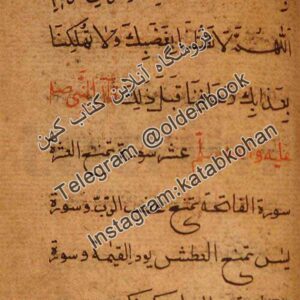 اللهم لا تقتلنا بغضبك ولا تهلكنا
بعذابك وعافنا قبل ذلك قال النبي صلى
عليه وسلم عشر سورة تمنع العشرة
سورة الفاتحة تمنع غضب الرب وسورة
يس تمنع العطش يوم القيمة وسورة
فروشگاه آنلاین کتاب کهن
Telegram @oldenbook
Instagram:katabkohan